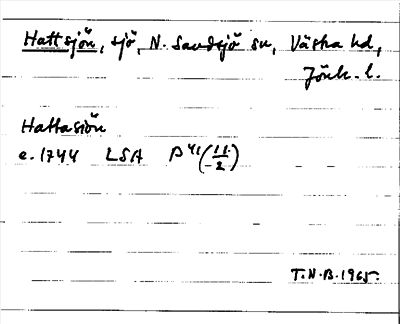 Hattsjön, sjö, N. Sandsjö sn, Västra hd,
Jönk. l.
Hattasiön
e. 1744 LSA P 41 (11/2)
T.N.B. 1965.